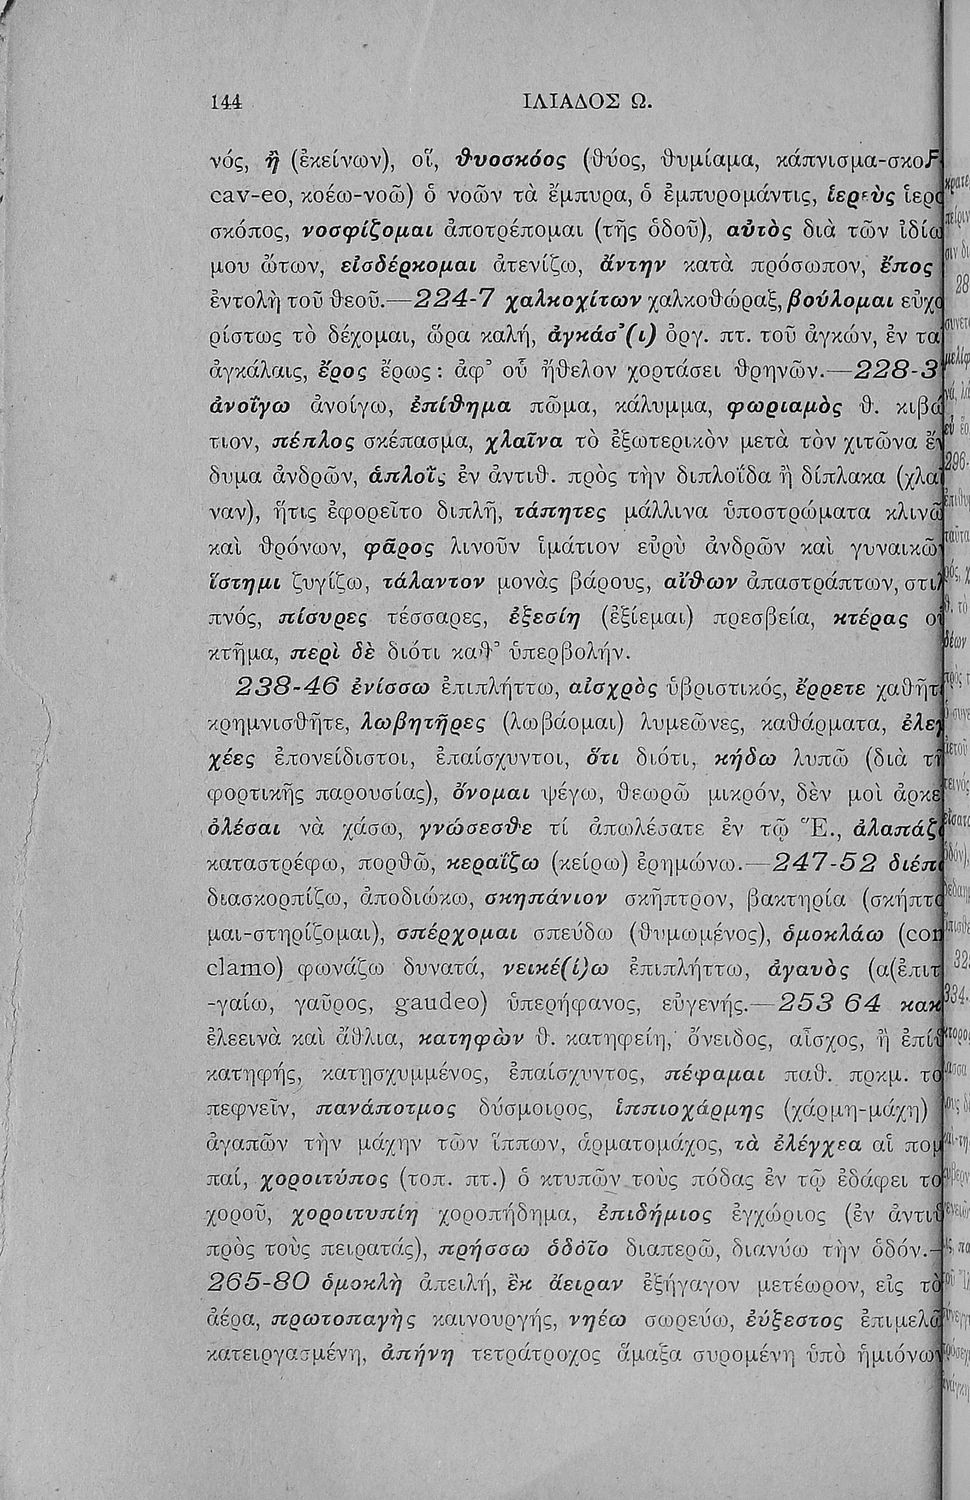 144 ΙΛΙΑΔΟΣ Ω.
νός, ἢ (ἐκείνων), οἵ, θυοσκόος (θύος, θυμίαμα, κάπνισμα-σκοF
cav-eo, κοέω-νοῶ) ὁ νοῶν τὰ ἔμπυρα, ὁ ἐμπυρομάντις, ἱερεὺς ἱερο
σκόπος, νοσφίζομαι ἀποτρέπομαι (τῆς ὁδοῦ), αὐτὸς διὰ τῶν ἰδίω
μου ὤτων, εἰσδέρκομαι ἀτενίζω, ἄντην κατὰ πρόσωπον, ἔπος
ἐντολὴ τοῦ θεοῦ.—224-7 χαλκοχίτων χαλκοθώραξ, βούλομαι εὐχα
ρίστως τὸ δέχομαι, ὥρα καλή, ἀγκάσ'(ι) ὀργ. πτ. τοῦ ἀγκών, ἐν τα
ἀγκάλαις, ἔρος ἔρως: ἀφ' οὗ ἤθελον χορτάσει θρηνῶν.—228-3
ἀνοΐγω ἀνοίγω, ἐπίθημα πῶμα, κάλυμμα, φωριαμὸς θ. κιβώ
τιον, πέπλος σκέπασμα, χλαῖνα τὸ ἐξωτερικὸν μετὰ τὸν χιτῶνα ἔν
δυμα ἀνδρῶν, ἁπλοῒς ἐν ἀντιθ. πρὸς τὴν διπλοΐδα ἢ δίπλακα (χλαῖ
ναν), ἥτις ἐφορεῖτο διπλῆ, τάπητες μάλλινα ὑποστρώματα κλινῶ
καὶ θρόνων, φᾶρος λινοῦν ἱμάτιον εὐρὺ ἀνδρῶν καὶ γυναικῶ
ἵστημι ζυγίζω, τάλαντον μονὰς βάρους, αἴθων ἀπαστράπτων, στιλ
πνός, πίσυρες τέσσαρες, ἐξεσίη (ἐξίεμαι) πρεσβεία, κτέρας
κτῆμα, περὶ δὲ διότι καθ' ὑπερβολήν.
238-46 ἐνίσσω ἐπιπλήττω, αἰσχρὸς ὑβριστικός, ἔρρετε χαθῆτ
κρημνισθῆτε, λωβητῆρες (λωβάομαι) λυμεῶνες, καθάρματα, ἐλεγ
χέες ἐπονείδιστοι, ἐπαίσχυντοι, ὅτι διότι, κήδω λυπῶ (διὰ τῆ
φορτικῆς παρουσίας), ὄνομαι ψέγω, θεωρῶ μικρόν, δὲν μοὶ ἀρκε
ὀλέσαι νὰ χάσω, γνώσεσθε τί ἀπωλέσατε ἐν τῷ Ἕ., ἀλαπάζ
καταστρέφω, πορθῶ, κεραΐζω (κείρω) ἐρημώνω.—247-52 διέπ
διασκορπίζω, ἀποδιώκω, σκηπάνιον σκῆπτρον, βακτηρία (σκήπτο
μαι-στηρίζομαι), σπέρχομαι σπεύδω (θυμωμένος), ὁμοκλάω (con
clamo) φωνάζω δυνατά, νεικέ(ί)ω ἐπιπλήττω, ἀγαυὸς (α(ἐπιτ
-γαίω, γαῦρος, gaudeo) ὑπερήφανος, εὐγενής.—253 64 κακ
ἐλεεινὰ καὶ ἄθλια, κατηφὼν θ. κατηφείη, ὄνειδος, αἶσχος, ἢ ἐπίθ
κατηφής, κατῃσχυμμένος, ἐπαίσχυντος, πέφαμαι παθ. πρκμ. το
πεφνεῖν, πανάποτμος δύσμοιρος, ἱππιοχάρμης (χάρμη-μάχη)
ἀγαπῶν τὴν μάχην τῶν ἵππων, ἁρματομάχος, τὰ ἐλέγχεα αἱ πομ
παί, χοροιτύπος (τοπ. πτ.) ὁ κτυπῶν τοὺς πόδας ἐν τῷ ἐδάφει το
χοροῦ, χοροιτυπίη χοροπήδημα, ἐπιδήμιος ἐγχώριος (ἐν ἀντιθ
πρὸς τοὺς πειρατάς), πρήσσω ὁδοῖο διαπερῶ, διανύω τὴν ὁδόν.—
265-80 ὁμοκλὴ ἀπειλή, ἐκ ἄειραν ἐξήγαγον μετέωρον, εἰς τὸ
ἀέρα, πρωτοπαγὴς καινουργής, νηέω σωρεύω, ἐύξεστος ἐπιμελῶ
κατειργασμένη, ἀπήνη τετράτροχος ἅμαξα συρομένη ὑπὸ ἡμιόνων